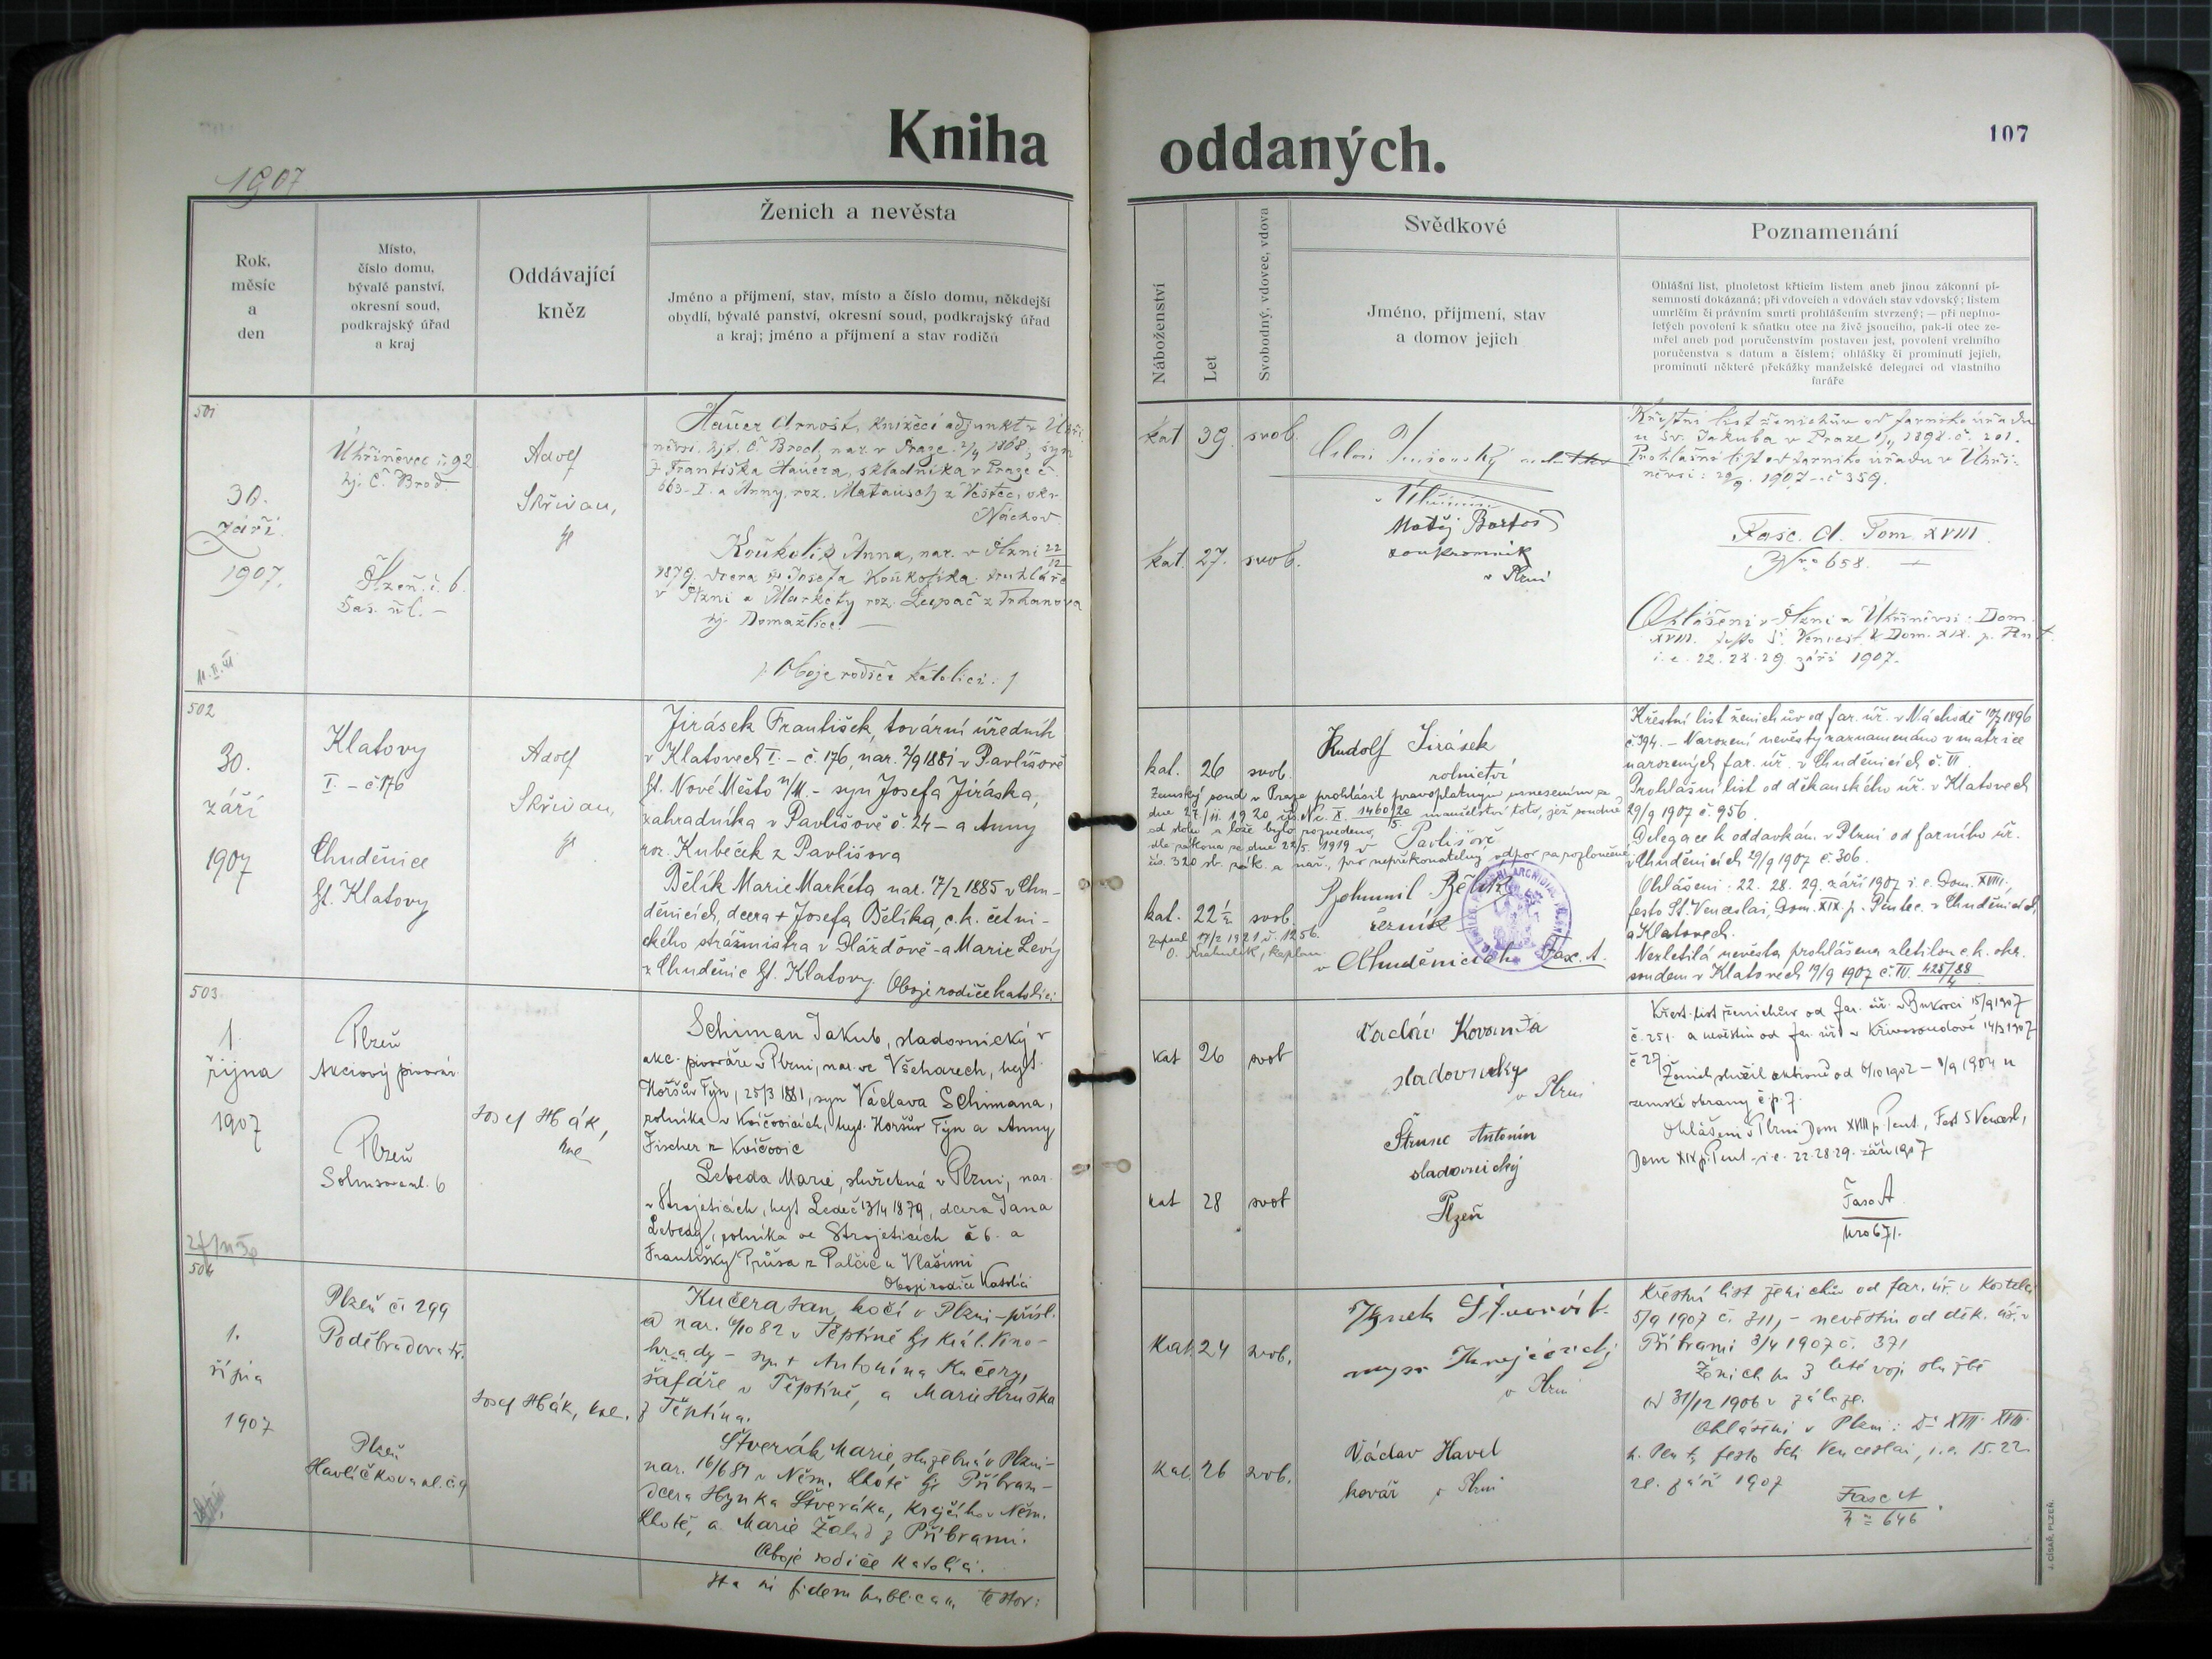 Kniha oddaných.
107
1907
Rok,
měsíc
a
den
Místo,
číslo domu,
bývalé panství,
okresní soud,
podkrajský úřad
a kraj
Oddávající
kněz
Ženich a nevěsta
Jméno a příjmení, stav, místo a číslo domu, někdejší
obydlí, bývalé panství, okresní soud, podkrajský úřad
a kraj; jméno a příjmení a stav rodičů
Náboženství
Let
Svobodný, vdovec, vdova
Svědkové
Jméno, příjmení, stav
a domov jejich
Poznamenání
Ohlášní list, plnoletost křticím listem aneb jinou zákonní pí-
semností dokázaná; při vdovcích a vdovách stav vdovský; listem
umrlčím či právním smrti prohlášením stvrzený; — při neplno-
letých povolení k sňatku otce na živě jsoucího, pak-li otec ze-
mřel aneb pod poručenstvím postaven jest, povolení vrchního
poručenstva s datum a číslem; ohlášky či prominutí jejich,
prominutí některé překážky manželské delegací od vlastního
faráře
501
30.
září
1907.
Úhříněvec č. 92
hj. Č. Brod.
Plzeň č. 6.
Adolf
Skřivan,
Hauer Arnošt, knížecí adjunkt v Úhři-
něvsi, hjt. Č. Brod, nar. v Praze 1868, syn
Františka Hauera, skladníka v Praze č.
663-I. a Anny, roz. Matausch z Vestec, okr.
Náchod
Koukolík Anna, nar. v Plzni 22/12
1879, dcera Josefa Koukolíka truhláře
v Plzni a Markéty roz. Lupač z Trhanova
hj. Domažlice. —
/: Oboje rodiče katolíci :/
kat 39. svob.
kat. 27. svob.
Matěj Bartoš
soukromník
v Plzni
Křestní list ženichův od farního úřadu
u sv. Jakuba v Praze 1898. č. 201.
Prohlašní list od farního úřadu v Úhři-
něvsi: 29/9. 1907 č 359.
Fasc. A. Tom. XVIII.
Nro 658. —
Ohlášeni v Plzni a Úhříněvsi: Dom.
XVIII. festo S. Vencesl. & Dom. XIX. p. Pent.
i. e. 22. 28. 29. září 1907.
502
30.
září
1907
Klatovy
I. – č. 176
Chuděnice
ht. Klatovy
Adolf
Skřivan,
Jirásek František, tovární úředník
v Klatovech I. – č. 176, nar. 2/9 1881 v Pavlišově
ht. Nové Město n/M. – syn Josefa Jiráska,
zahradníka v Pavlišově č. 24 – a Anny
roz. Kubeček z Pavlišova
Bělík Marie Markéta nar. 17/2 1885 v Chu-
děnicích, dcera + Josefa Bělíka, c. k. četni-
ckého strážmistra v Ždáždově – a Marie Levý
z Chuděnic ht. Klatovy. Oboje rodiče katolíci
kat. 26 svob.
Rudolf Jirásek
rolnictví
Pavlišově
Zemský soud v Praze prohlásil pravoplatným usnesením ze
dne 27/11. 1920 čís. Nc. X. 1460/20/5 manželství toto, jež soudně
od stolu a lože bylo rozvedeno,
dle zákona ze dne 22/5. 1919
čís. 320 sb. zák. a nař., pro nepřekonatelný odpor za rozloučené.
kat. 22½ svob.
Zapsal 17/2 1921 č. 1256.
O. Krahulík, kaplan.
Bohumil Bělík
řezník
v Chuděnicích
Fasc. A.
Křestní list ženichův od far. úř. v Náchodě 10/7 1896
č. 394. – Narození nevěsty zaznamenáno v matrice
narozených far. úř. v Chuděnicích č. VI
Prohlašní list od děkanského úř. v Klatovech
29/9 1907 č. 956.
Delegace k oddavkám v Plzni od farního úř.
v Chuděnicích 29/9 1907 č. 306.
Ohlášeni: 22. 28. 29. září 1907 i. e. Dom. XVIII.,
festo St. Venceslai, Dom. XIX. p. Pentec. v Chuděnicích
a Klatovech.
Nezletilá nevěsta prohlášena zletilou c. k. okr.
soudem v Klatovech 19/9 1907 č. IV. 425/88
503
1.
října
1907
Plzeň
Akciový pivovár
Plzeň
Solnsova ul. 6
Josef Hák,
Schiman Jakub, sladovnický v
akc. pivováře v Plzni, nar. ve Všeharech, hejt.
Horšův Týn, 25/3 1881, syn Václava Schimana,
rolníka v Kvíčovicích, hejt. Horšův Týn a Anny
Fischer z Kvíčovic
Lebeda Marie, služebná v Plzni, nar.
v Strojeticích, hejt Ledeč 13/4 1879, dcera Jana
Lebedy, rolníka ve Strojeticích č 6. a
Františky Průša z Palčic u Vlašimi
Oboji rodiče Katolíci
kat 26 svob
kat 28 svob
Václav Kovanda
sladovnický
v Plzni
Štrunc Antonín
sladovnický
Plzeň
Křest. list ženichův od far. úř. v Bukovci 15/9 1907
č. 251. a nevěstin od far. úř. v Křivsoudově 14/3 1907
č 27
Ženich sloužil aktivně od 6/10 1902 – 9/9 1904 u
zemské obrany č. p. 7.
Ohlášeni v Plzni Dom XVIII p. Pent., Fest S Vencesl.,
Dom XIX p. Pent. i. e. 22. 28. 29. září 1907
Fasc A
Nro 671.
504
1.
října
1907
Plzeň č. 299
Poděbradova tř.
Plzeň
Havlíčkova ul. č. 9
Josef Hák, kpl.
Kučera Jan, kočí v Plzni – přísl.
a nar. 6/10 82 v Těptíně hjt Král. Vino-
hrady – syn + Antonína Kučery,
šafáře v Těptíně, a Marie Hruška
z Těptína.
Štverák Marie, služebná v Plzni –
nar. 16/6 81 v Něm. Lhotě hjt Příbram –
dcera Hynka Štveráka, krejčího v Něm.
Lhotě, a Marie Žalud z Příbrami.
Oboje rodiče Katolíci.
Ita in fidem publicam testor:
Kat. 24 svob.
Kat 26 svob.
Hynek Štverák
mistr krejčovský
v Plzni
Václav Havel
kovář v Plzni
Křestní list ženichův od far. úř. v Kostelci
5/9 1907 č. 711, – nevěstin od děk. úř. v
Příbrami 3/4 1907 č. 371
Ženich po 3 leté voj. službě
od 31/12 1906 v záloze.
Ohlášeni v Plzni: D. XVII. XVIII.
p. Pent, festo Scti Venceslai, i. e. 15. 22.
28. září 1907
Fasc A
N = 646
J. CÍSAŘ, PLZEŇ.